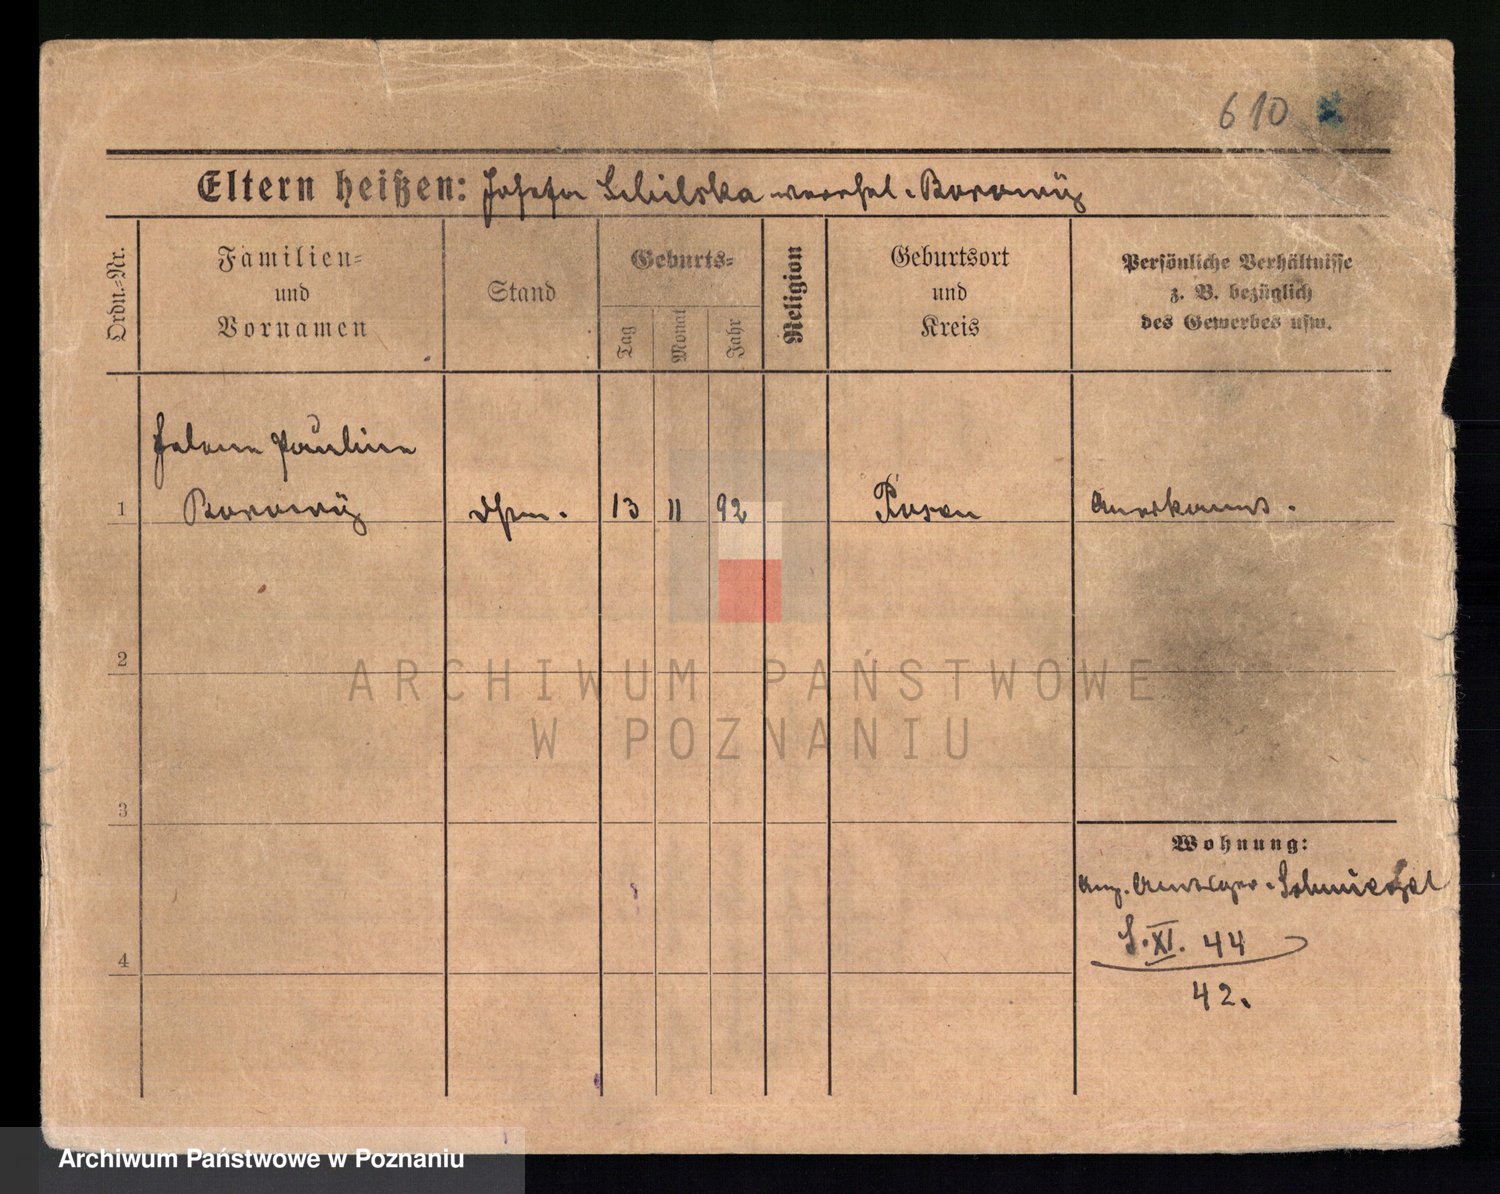 610
Eltern heißen: Josefa Schilska verehel. Borowicz
Ordn.-Nr.
Familien-
und
Vornamen
Stand
Geburts-
Tag
Monat
Jahr
Religion
Geburtsort
und
Kreis
Persönliche Verhältnisse
z. B. bezüglich
des Gewerbes usw.
Helene Pauline
1 Borowicz 13 11 92 Posen Anerkannt.
2
ARCHIWUM PAŃSTWOWE
W POZNANIU
3
Wohnung:
S. XI. 44
4
42.
Archiwum Państwowe w Poznaniu